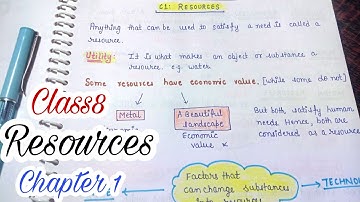 C1: RESOURCES
Anything that can be used to satisfy a need is called a
resource.
Utility: It is what makes an object or substance a
resource. e.g. water
Some resources have economic value. [while some do not]
Metal
A Beautiful
landscape
Economic
value x
But both, satisfy human
needs. Hence, both are
considered as a resource
Class8
Resources
Chapter 1
Factors that
can change substances
into resources
TECHNO